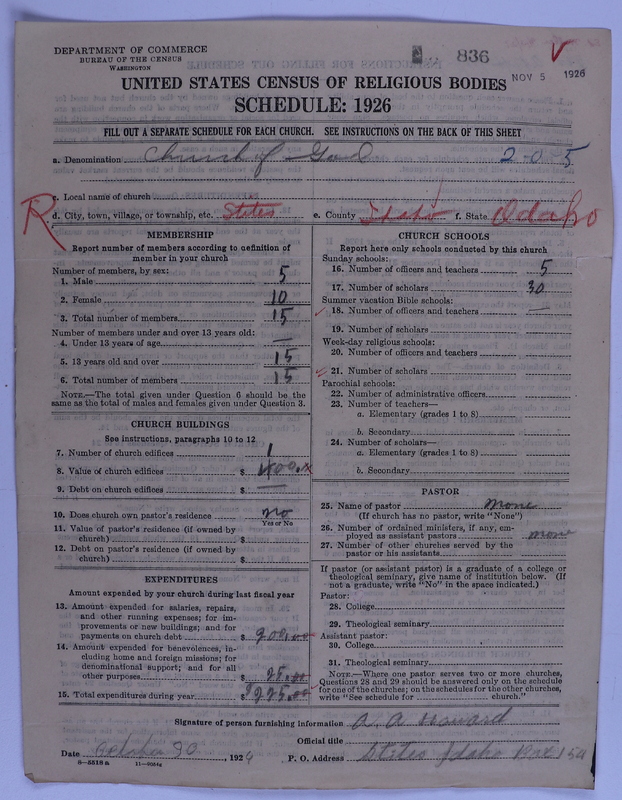 DEPARTMENT OF COMMERCE
BUREAU OF THE CENSUS
WASHINGTON
836
NOV 5 1926
UNITED STATES CENSUS OF RELIGIOUS BODIES
SCHEDULE: 1926
FILL OUT A SEPARATE SCHEDULE FOR EACH CHURCH. SEE INSTRUCTIONS ON THE BACK OF THIS SHEET
a. Denomination Church of God 2-0-5
c. Local name of church
R d. City, town, village, or township, etc. Stites e. County Idaho f. State Idaho
MEMBERSHIP
Report number of members according to definition of
member in your church
Number of members, by sex:
1. Male 5
2. Female 10
3. Total number of members 15
Number of members under and over 13 years old:
4. Under 13 years of age —
5. 13 years old and over 15
6. Total number of members 15
NOTE.—The total given under Question 6 should be the
same as the total of males and females given under Question 3.
CHURCH BUILDINGS
See instructions, paragraphs 10 to 12
7. Number of church edifices 1
8. Value of church edifices $
9. Debt on church edifices $ —
10. Does church own pastor's residence no
Yes or No
11. Value of pastor's residence (if owned by
church) $
12. Debt on pastor's residence (if owned by
church) $
EXPENDITURES
Amount expended by your church during last fiscal year
13. Amount expended for salaries, repairs,
and other running expenses; for im-
provements or new buildings; and for
payments on church debt $ 200.00
14. Amount expended for benevolences, in-
cluding home and foreign missions; for
denominational support; and for all
other purposes $ 25.00
15. Total expenditures during year $ 225.00
CHURCH SCHOOLS
Report here only schools conducted by this church
Sunday schools:
16. Number of officers and teachers 5
17. Number of scholars 30
Summer vacation Bible schools:
18. Number of officers and teachers —
19. Number of scholars
Week-day religious schools:
20. Number of officers and teachers
21. Number of scholars
Parochial schools:
22. Number of administrative officers
23. Number of teachers—
a. Elementary (grades 1 to 8)
b. Secondary
24. Number of scholars—
a. Elementary (grades 1 to 8)
b. Secondary
PASTOR
25. Name of pastor none
(If church has no pastor, write "None")
26. Number of ordained ministers, if any, em-
ployed as assistant pastors none
27. Number of other churches served by the
pastor or his assistants
If pastor (or assistant pastor) is a graduate of a college or
theological seminary, give name of institution below. (If
not a graduate, write "No" in the space indicated.)
Pastor:
28. College
29. Theological seminary
Assistant pastor:
30. College
31. Theological seminary
NOTE.—Where one pastor serves two or more churches,
Questions 28 and 29 should be answered only on the schedule
for one of the churches; on the schedules for the other churches,
write "See schedule for church."
Signature of person furnishing information A. A.
Official title
Date October 30, 1926 P. O. Address Stites Idaho Box 154
8-5518 a 11-9054a